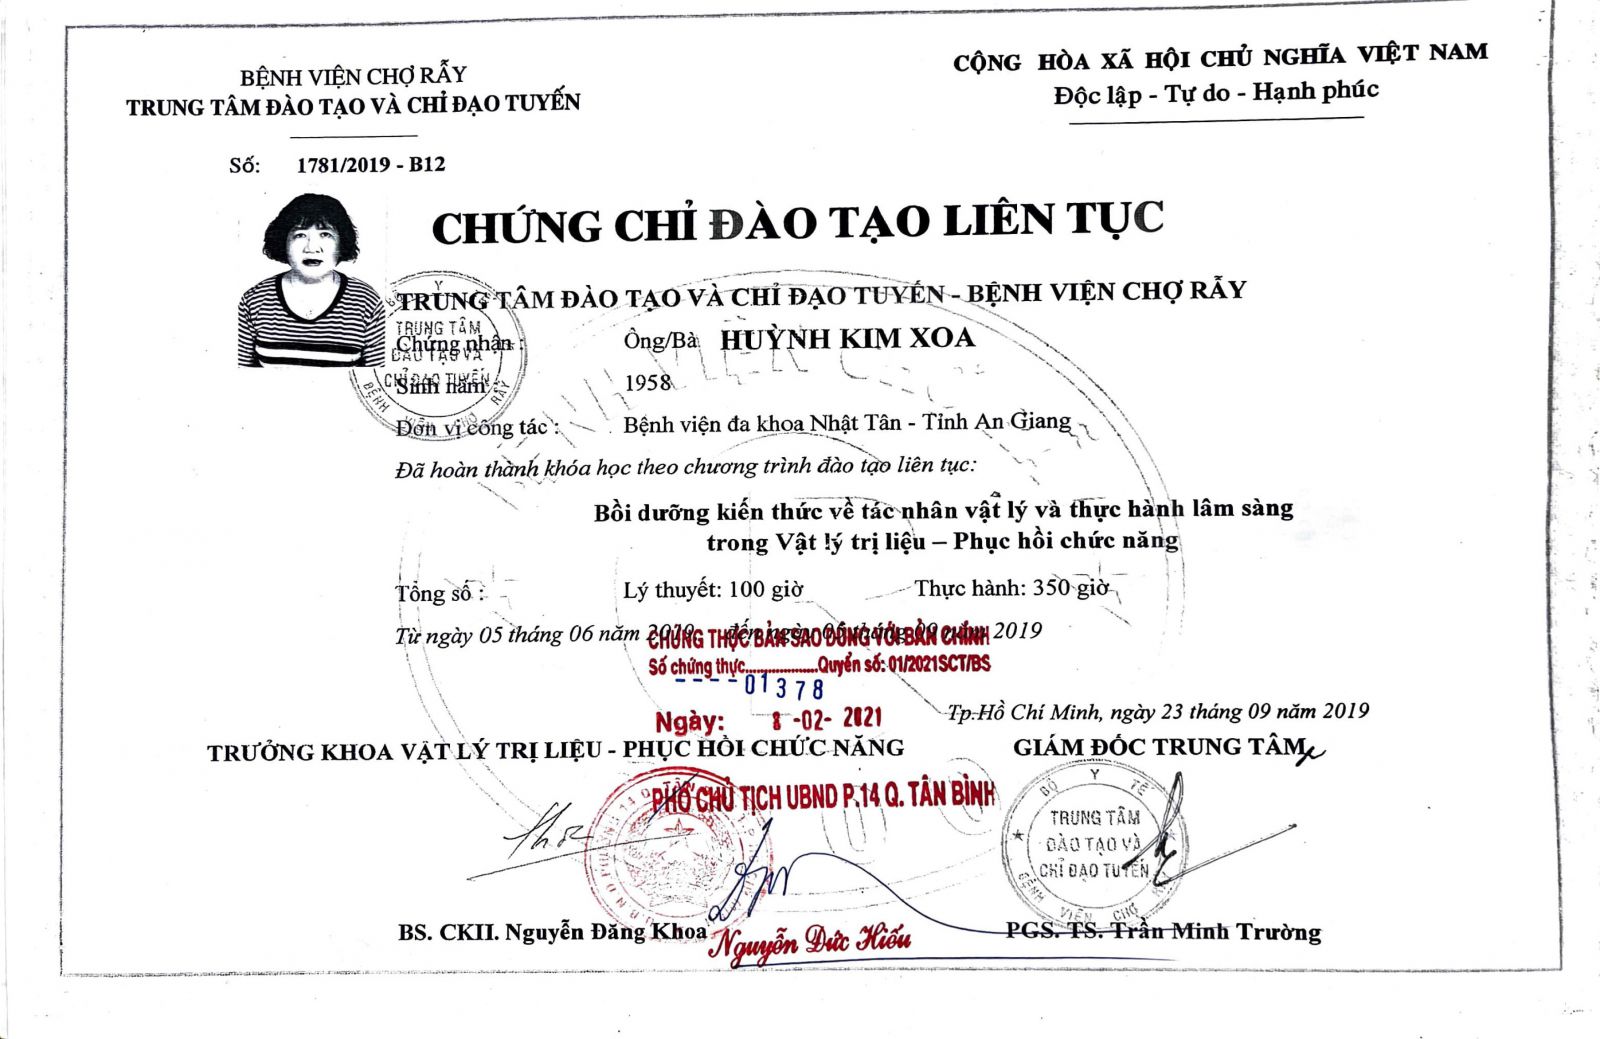 BỆNH VIỆN CHỢ RẪY
TRUNG TÂM ĐÀO TẠO VÀ CHỈ ĐẠO TUYẾN
CỘNG HÒA XÃ HỘI CHỦ NGHĨA VIỆT NAM
Độc lập - Tự do - Hạnh phúc
Số: 1781/2019 - B12
CHỨNG CHỈ ĐÀO TẠO LIÊN TỤC
TRUNG TÂM ĐÀO TẠO VÀ CHỈ ĐẠO TUYẾN - BỆNH VIỆN CHỢ RẪY
Chứng nhận : Ông/Bà HUỲNH KIM XOA
Sinh năm : 1958
Đơn vị công tác : Bệnh viện đa khoa Nhật Tân - Tỉnh An Giang
TRUNG TÂM
ĐÀO TẠO VÀ
CHỈ ĐẠO TUYẾN
BỆNH VIỆN CHỢ RẪY
Đã hoàn thành khóa học theo chương trình đào tạo liên tục:
Bồi dưỡng kiến thức về tác nhân vật lý và thực hành lâm sàng
trong Vật lý trị liệu – Phục hồi chức năng
Tổng số : Lý thuyết: 100 giờ Thực hành: 350 giờ
Từ ngày 05 tháng 06 năm 2019 đến ngày 05 tháng 09 năm 2019
CHỨNG THỰC BẢN SAO ĐÚNG VỚI BẢN CHÍNH
Số chứng thực..................Quyển số: 01/2021SCT/BS
01378
Ngày: -02- 2021
Tp.Hồ Chí Minh, ngày 23 tháng 09 năm 2019
TRƯỞNG KHOA VẬT LÝ TRỊ LIỆU - PHỤC HỒI CHỨC NĂNG
GIÁM ĐỐC TRUNG TÂM
PHÓ CHỦ TỊCH UBND P.14 Q. TÂN BÌNH
BỘ Y TẾ
TRUNG TÂM
ĐÀO TẠO VÀ
CHỈ ĐẠO TUYẾN
BỆNH VIỆN CHỢ RẪY
BS. CKII. Nguyễn Đăng Khoa
Nguyễn Đức Hiếu
PGS. TS. Trần Minh Trường